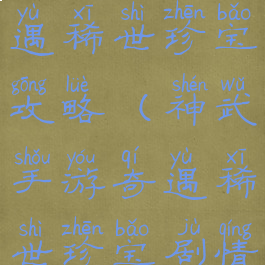 yù xī shì zhēn bǎo
遇稀世珍宝
gōng lüè shén wǔ
攻略(神武
shǒu yóu qí yù xī
手游奇遇稀
shì zhēn bǎo jù qíng
世珍宝剧情